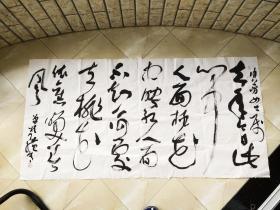 去年今日此
门中
人面桃花
相映红人面
不知何处
去桃花
依旧笑春
风